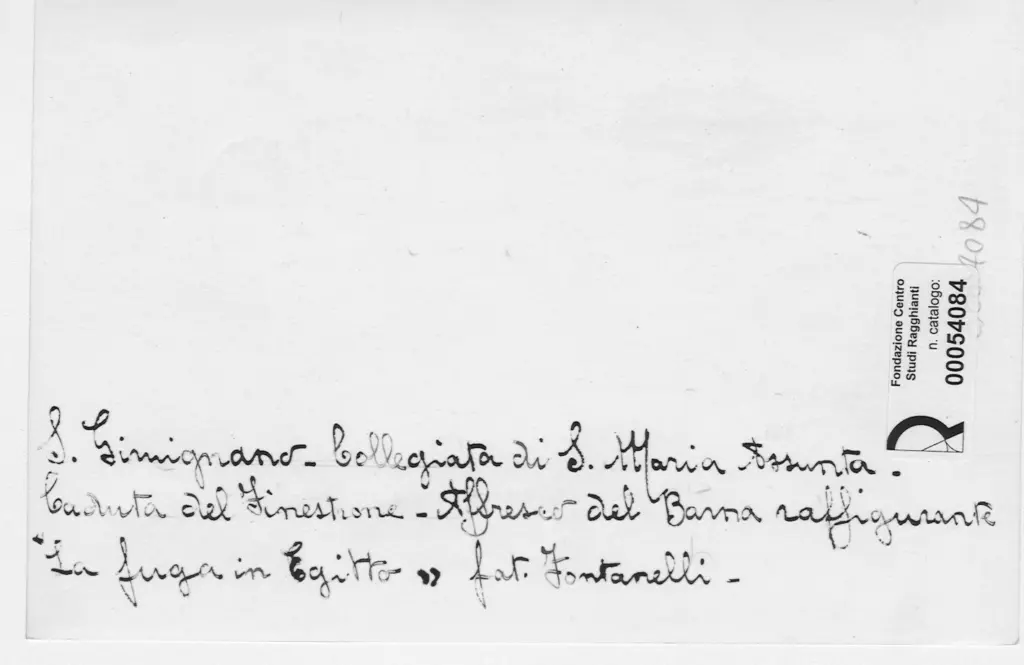 S. Gimignano - Collegiata di S. Maria Assunta -
Caduta del Finestrone - Affresco del Barna raffigurante
"La fuga in Egitto" fot. Fontanelli -
Fondazione Centro
Studi Ragghianti
n. catalogo:
00054084
4084